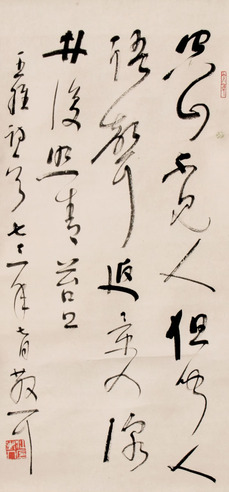 空山不見人但聞人
語響返景入深
林復照青苔上
王維 七二年 散耳